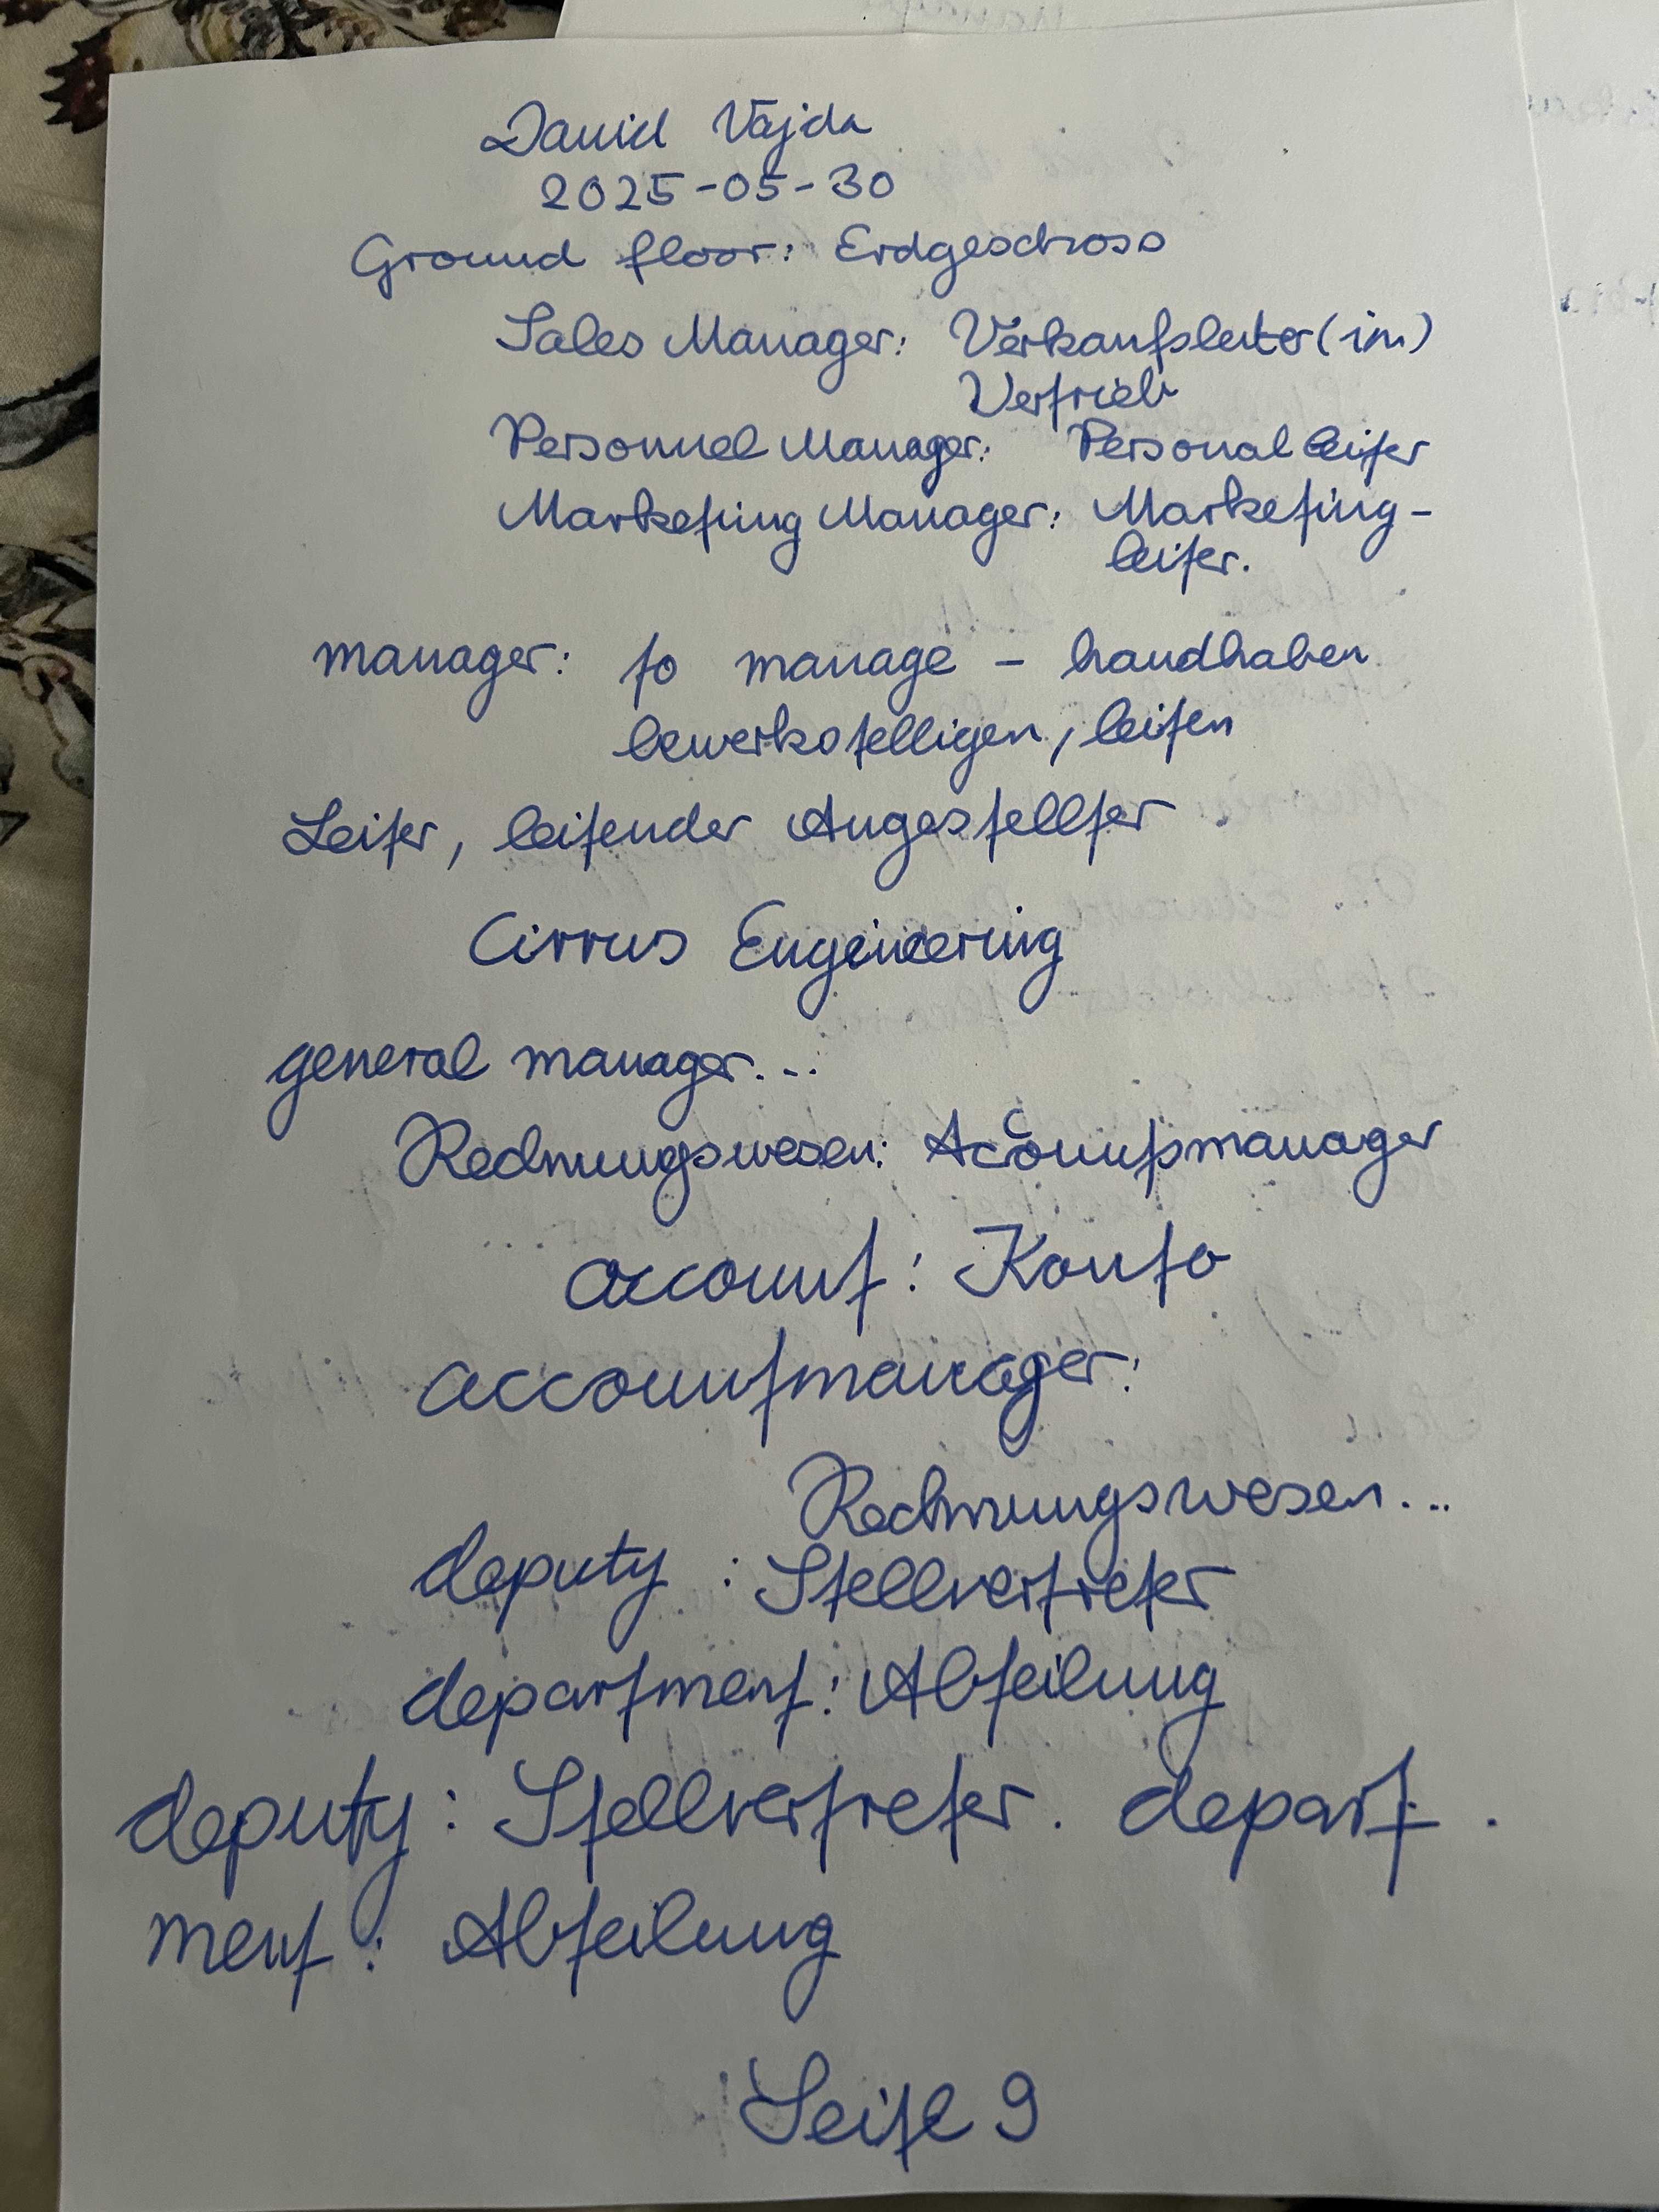 David Vajda
2025-05-30
Ground floor: Erdgeschoss
Sales Manager: Verkaufsleiter(in)
Vertrieb
Personnel Manager: Personalleiter
Marketing Manager: Marketing-
leiter.
manager: to manage - handhaben
bewerkstelligen, leiten
Leiter, leitender Angestellter
Cirrus Engineering
general manager...
Rechnungswesen: Accountsmanager
account: Konto
accountmanager:
Rechnungswesen...
deputy: Stellvertreter
department: Abteilung
deputy: Stellvertreter. depart.
ment: Abteilung
Seite 9